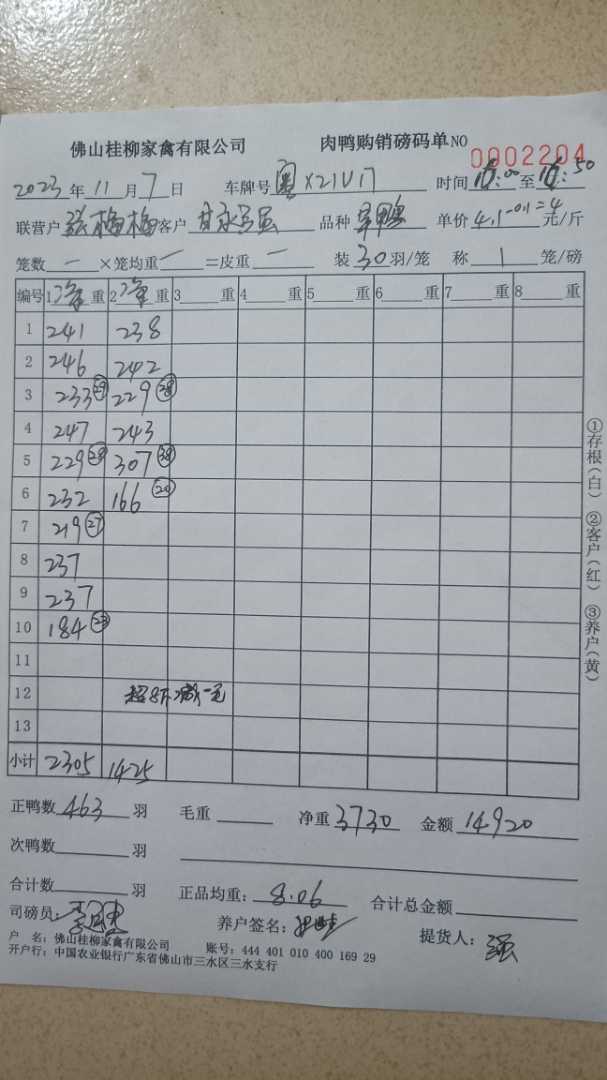 佛山桂柳家禽有限公司 肉鸭购销磅码单 NO 0002204
2023年11月7日 车牌号 粤X21U17 时间 :00至 :50
联营户 张梅梅 客户 甘永 品种 草鸭 单价 4.1-0.1=4 元/斤
笼数 一 ×笼均重 一 =皮重 一 装 30 羽/笼 称 1 笼/磅
编号 1 净 重 2 净 重 3 重 4 重 5 重 6 重 7 重 8 重
1 241 238
2 246 242
3 233 29 229 28
4 247 243
5 229 28 307 38
6 232 166 20
7 219 27
8 237
9 237
10 184 23
11
12 超8斤减一毛
13
小计 2305 1425
正鸭数 463 羽 毛重 净重 3730 金额 14920
次鸭数 羽
合计数 羽 正品均重: 8.06 合计总金额
司磅员: 养户签名: 提货人: 强
户 名: 佛山桂柳家禽有限公司 账号: 444 401 010 400 169 29
开户行: 中国农业银行广东省佛山市三水区三水支行
①存根(白) ②客户(红) ③养户(黄)